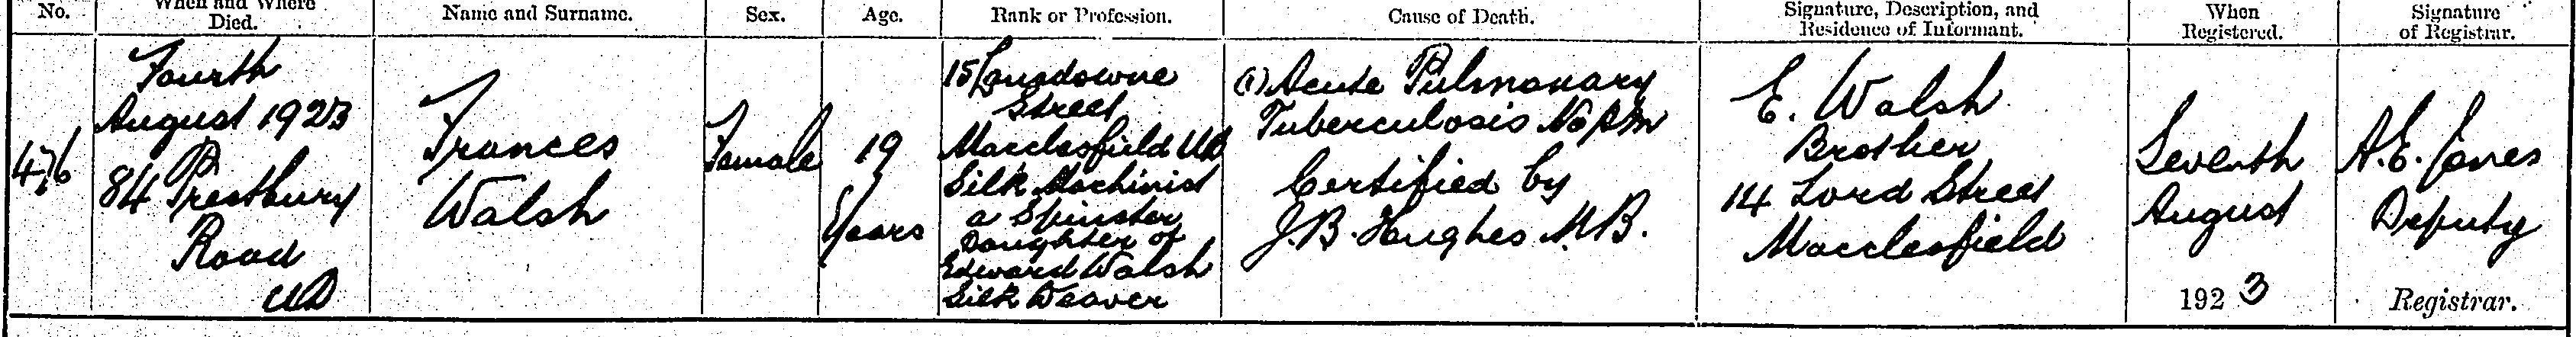 No.
When and Where
Died.
Name and Surname.
Sex.
Age.
Rank or Profession.
Cause of Death.
Signature, Description, and
Residence of Informant.
When
Registered.
Signature
of Registrar.
476
Fourth
August 1923
84 Prestbury
Road
UD
Frances
Walsh
Female
19
Years
15 Lansdowne
Street
Macclesfield UD
Silk Machinist
a Spinster
Daughter of
Edward Walsh
Silk Weaver
(1) Acute Pulmonary
Tuberculosis No P.M
Certified by
J.B. Hughes M.B.
E. Walsh
Brother
14 Lord Street
Macclesfield
Seventh
August
1923
A.E. Jones
Deputy
Registrar.